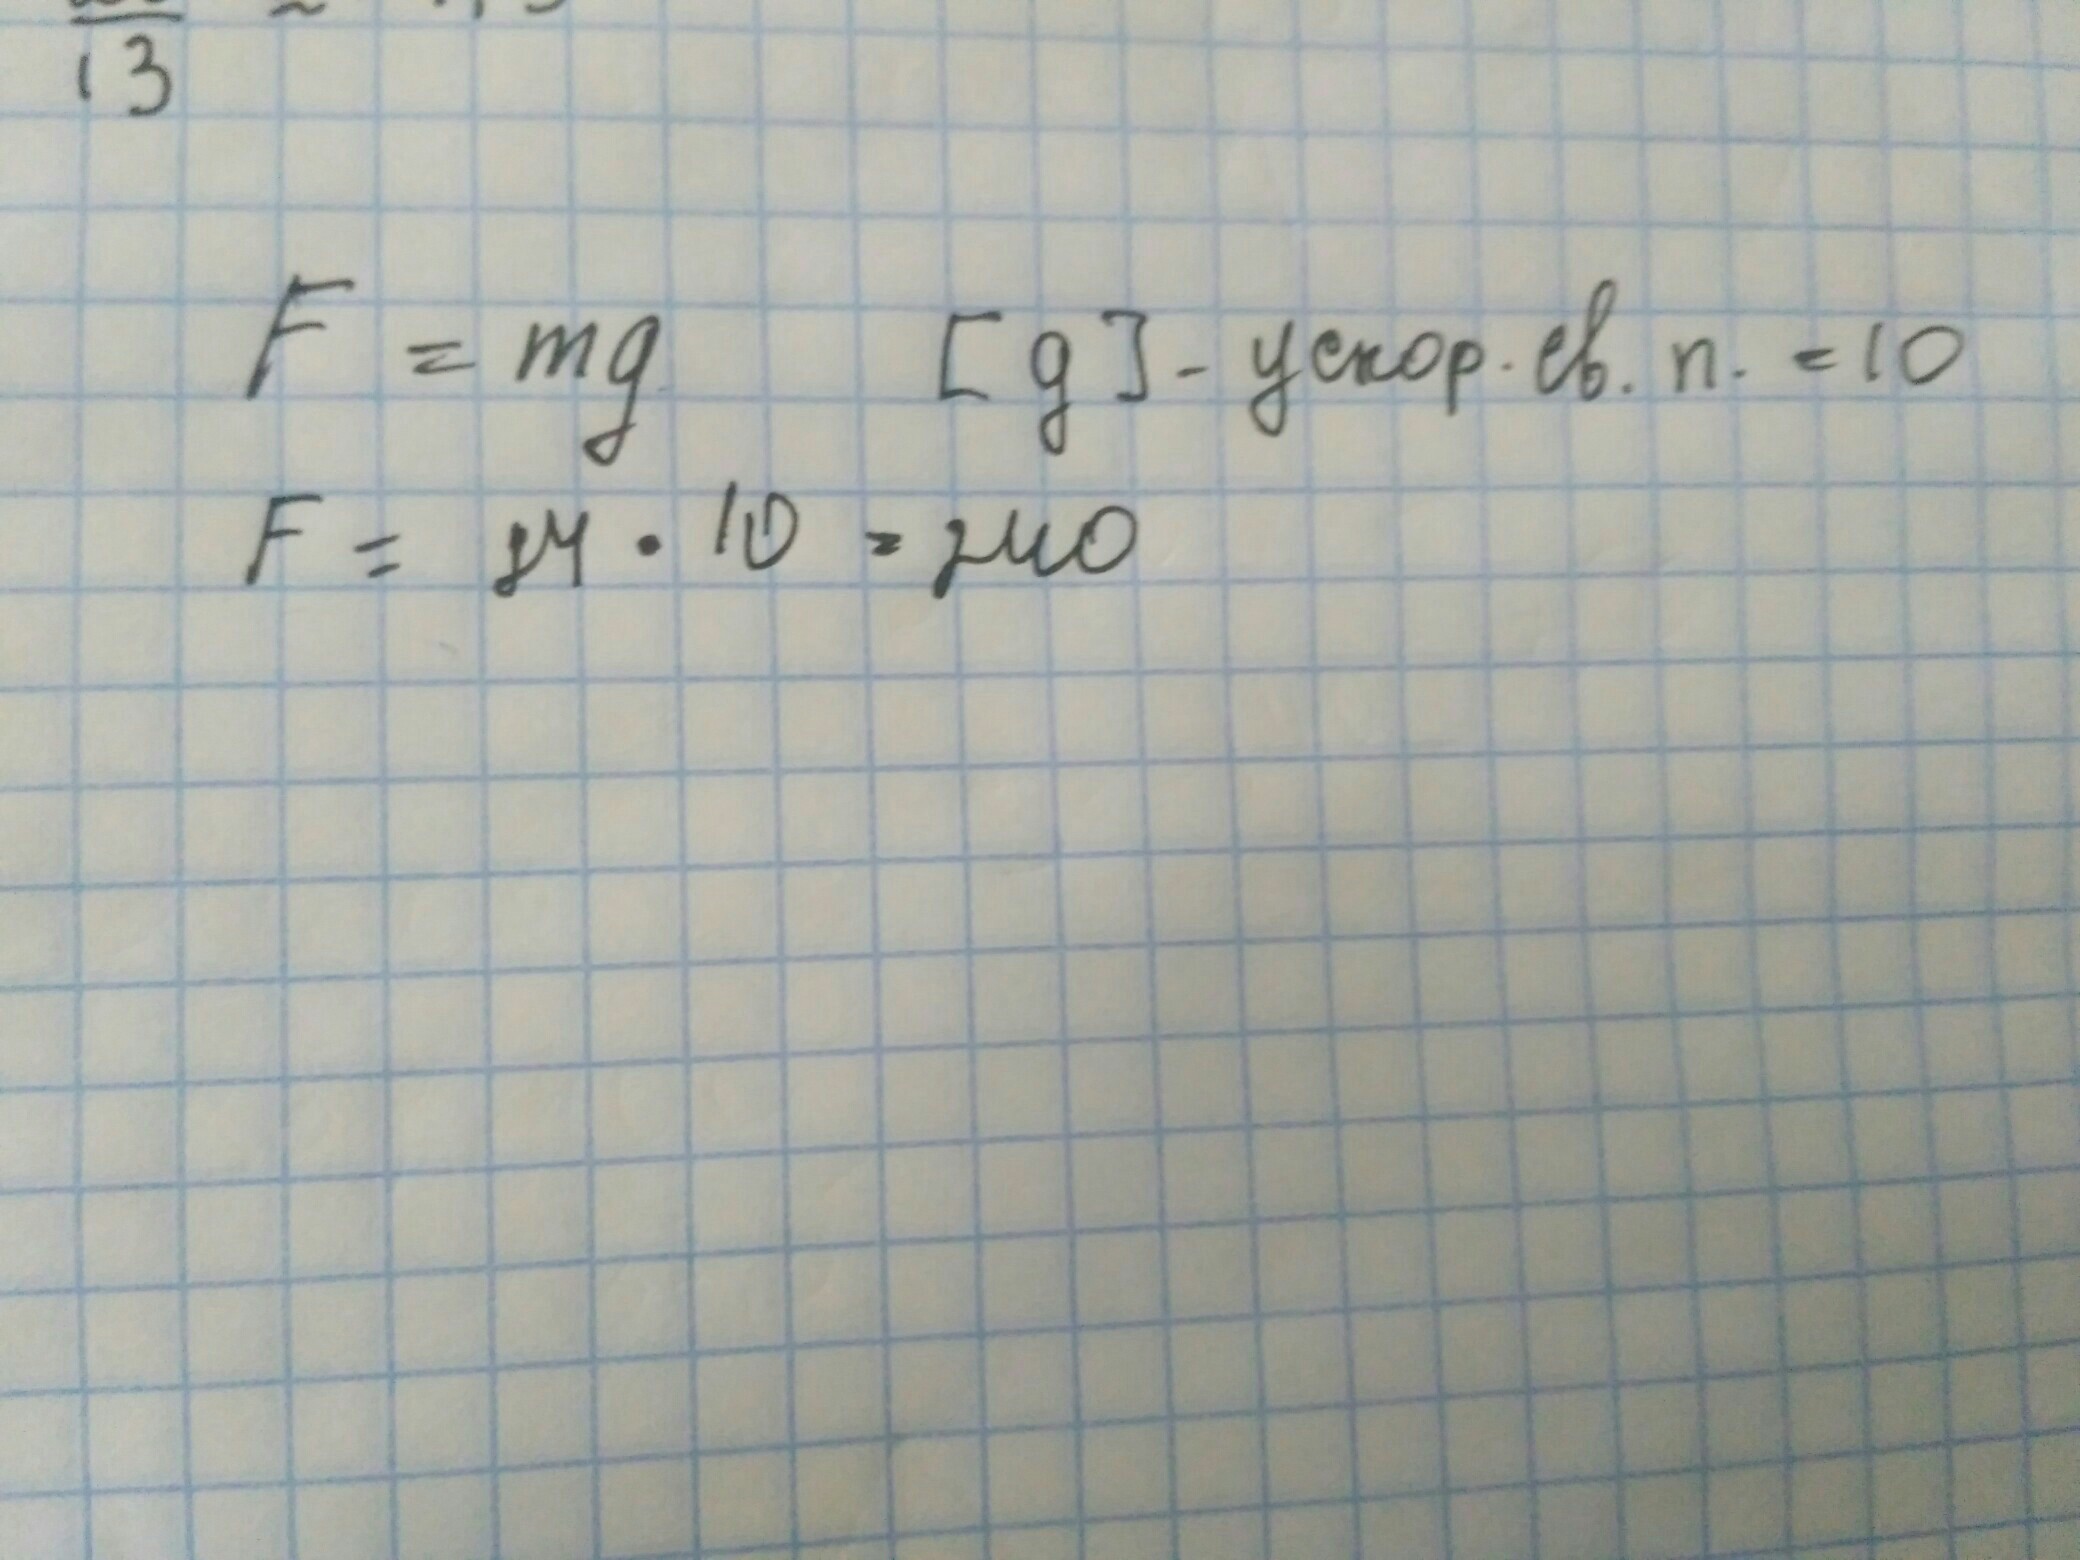 13
F = mg [g] - ускор. св. п. = 10
F = 24 · 10 = 240